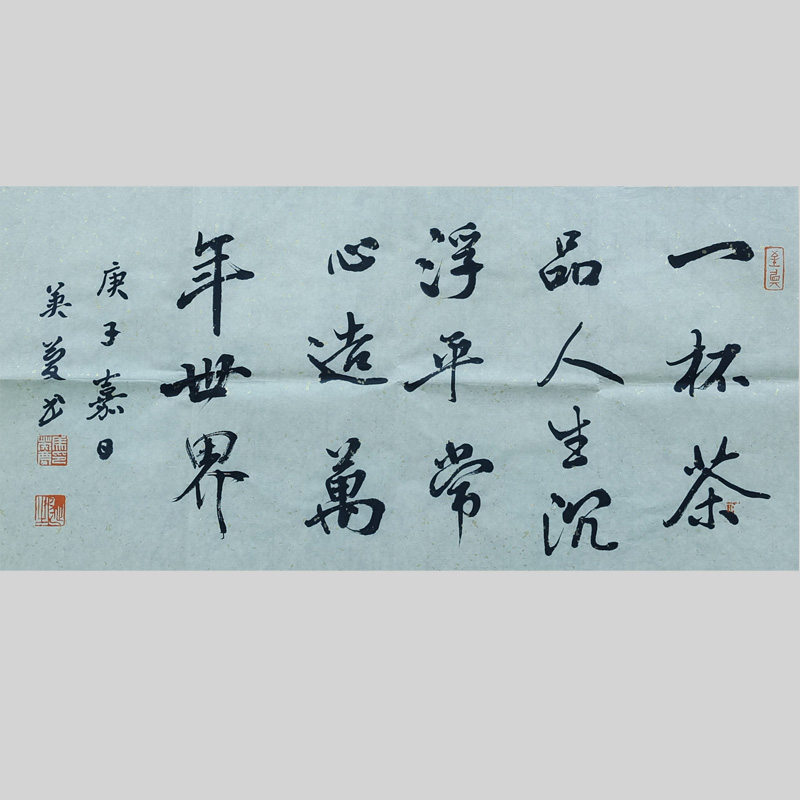 一杯茶
品人生沉
浮平常
心造萬
年世界
庚子嘉日
英夏书